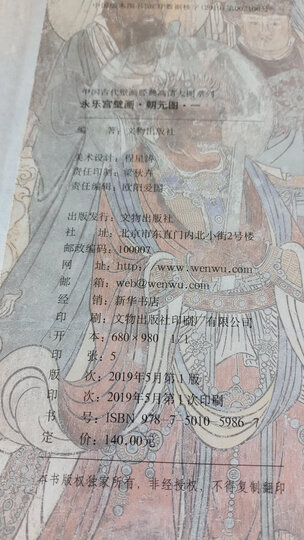 中国版本图书馆CIP数据核字
中国古代壁画经典高清大图系列
永乐宫壁画·朝元图·一
编 著:文物出版社
美术设计:程星涛
责任印制:梁秋卉
责任编辑:欧阳爱国
出版发行:文物出版社
社 址:北京市东直门内北小街2号楼
邮政编码:100007
网 址:http://www.wenwu.com
邮 箱:web@wenwu.com
经 销:新华书店
印 刷:文物出版社印刷厂有限公司
开 本:680×980 1/1
印 张:5
版 次:2019年5月第1版
印 次:2019年5月第1次印刷
书 号:ISBN 978-7-5010-5986-7
定 价:140.00元
本书版权独家所有,非经授权,不得复制翻印